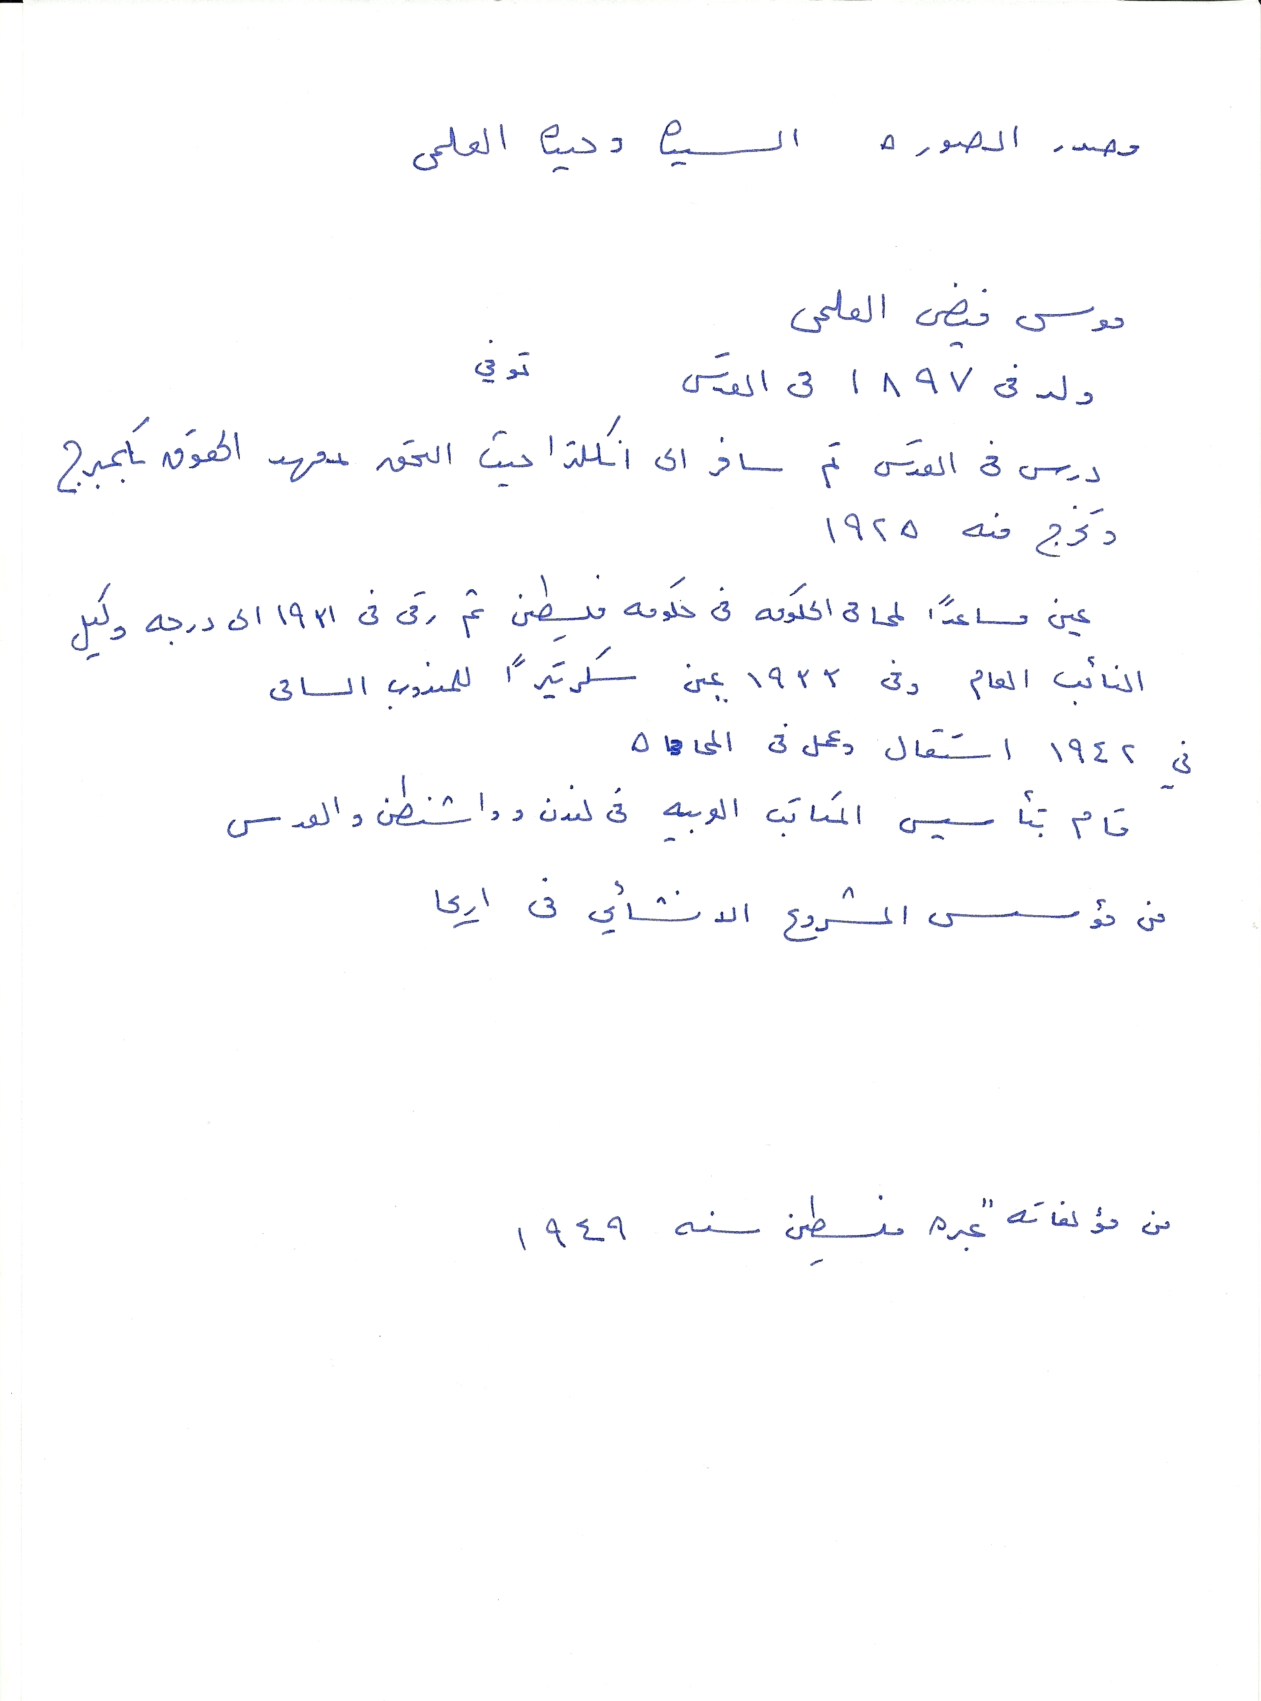 مصدر الصوره السيده وحيده العلمي
موسى فيضي العلمي
ولد فى ١٨٩٧ فى القدس توفي
درس فى القدس ثم سافر الى انكلترا حيث التحق بمعهد الحقوق بكمبردج
وتخرج منه ١٩٢٥
عين مساعدًا لمحامى الحكومه فى حكومه فلسطين ثم رقى فى ١٩٣١ الى درجه وكيل
النائب العام وفى ١٩٣٢ عين سكرتيرًا للمندوب السامى
في ١٩٤٢ استقال وعمل فى المحاماه
قام بتأسيس المكاتب العربيه فى لندن وواشنطن والقدس
من مؤسس المشروع الانشائي فى اريحا
من مؤلفاته "عبره فلسطين سنه ١٩٤٩